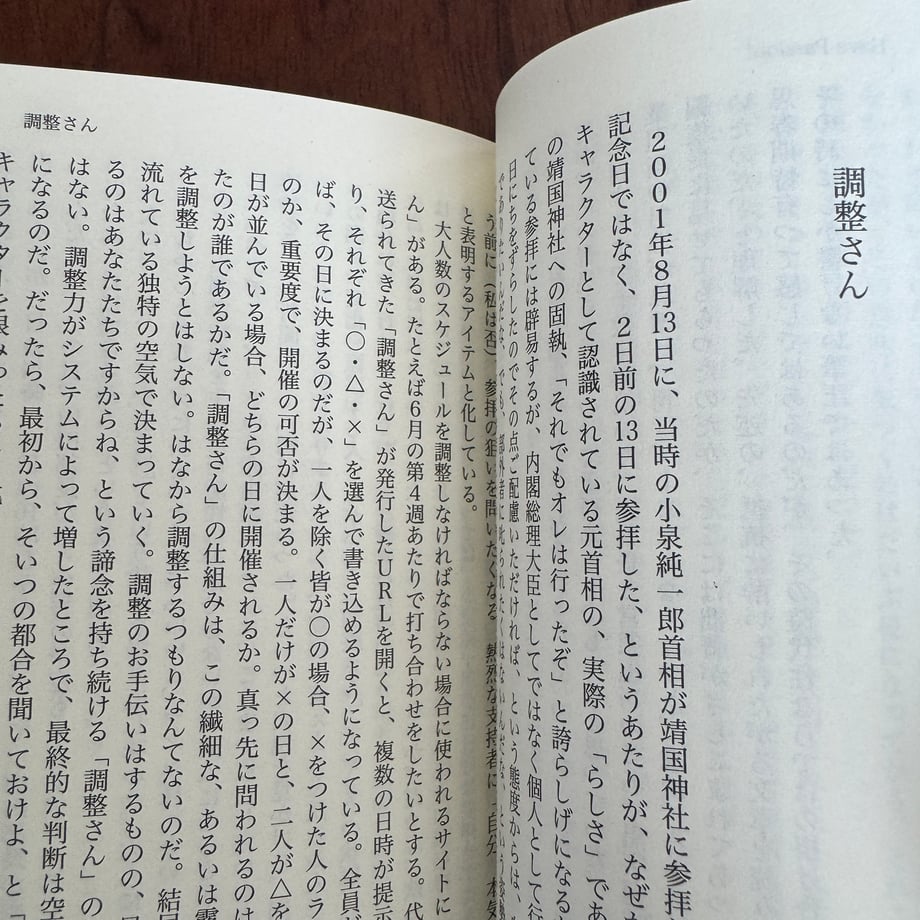 調整さん
2001年8月13日に、当時の小泉純一郎首相が靖国神社に参拝
記念日ではなく、2日前の13日に参拝した、というあたりが、なぜか
キャラクターとして認識されている元首相の、実際の「らしさ」であ
の靖国神社への固執、「それでもオレは行ったぞ」と誇らしげになる
ている参拝には辟易するが、内閣総理大臣としてではなく個人として行
日にちをずらしたのでその点ご配慮いただければ、という態度からは、
う前に（私は否）、参拝の狙いを問いたくなる。熱烈な支持者に「自分、本気
と表明するアイテムと化している。
調整さん
大人数のスケジュールを調整しなければならない場合に使われるサイトに
ん」がある。たとえば6月の第4週あたりで打ち合わせをしたいとする。代
送られてきた「調整さん」が発行したURLを開くと、複数の日時が提示
り、それぞれ「〇・△・×」を選んで書き込めるようになっている。全員が
ば、その日に決まるのだが、一人を除く皆が〇の場合、×をつけた人のラ
のか、重要度で、開催の可否が決まる。一人だけが×の日と、二人が△を
日が並んでいる場合、どちらの日に開催されるか。真っ先に問われるのは
たのが誰であるかだ。「調整さん」の仕組みは、この繊細な、あるいは
を調整しようとはしない。はなから調整するつもりなんてないのだ。結局
流れている独特の空気で決まっていく。調整のお手伝いはするものの、
るのはあなたたちですからね、という諦念を持ち続ける「調整さん」の
はない。調整力がシステムによって増したところで、最終的な判断は空
になるのだ。だったら、最初から、そいつの都合を聞いておけよ、と
キャラクターを